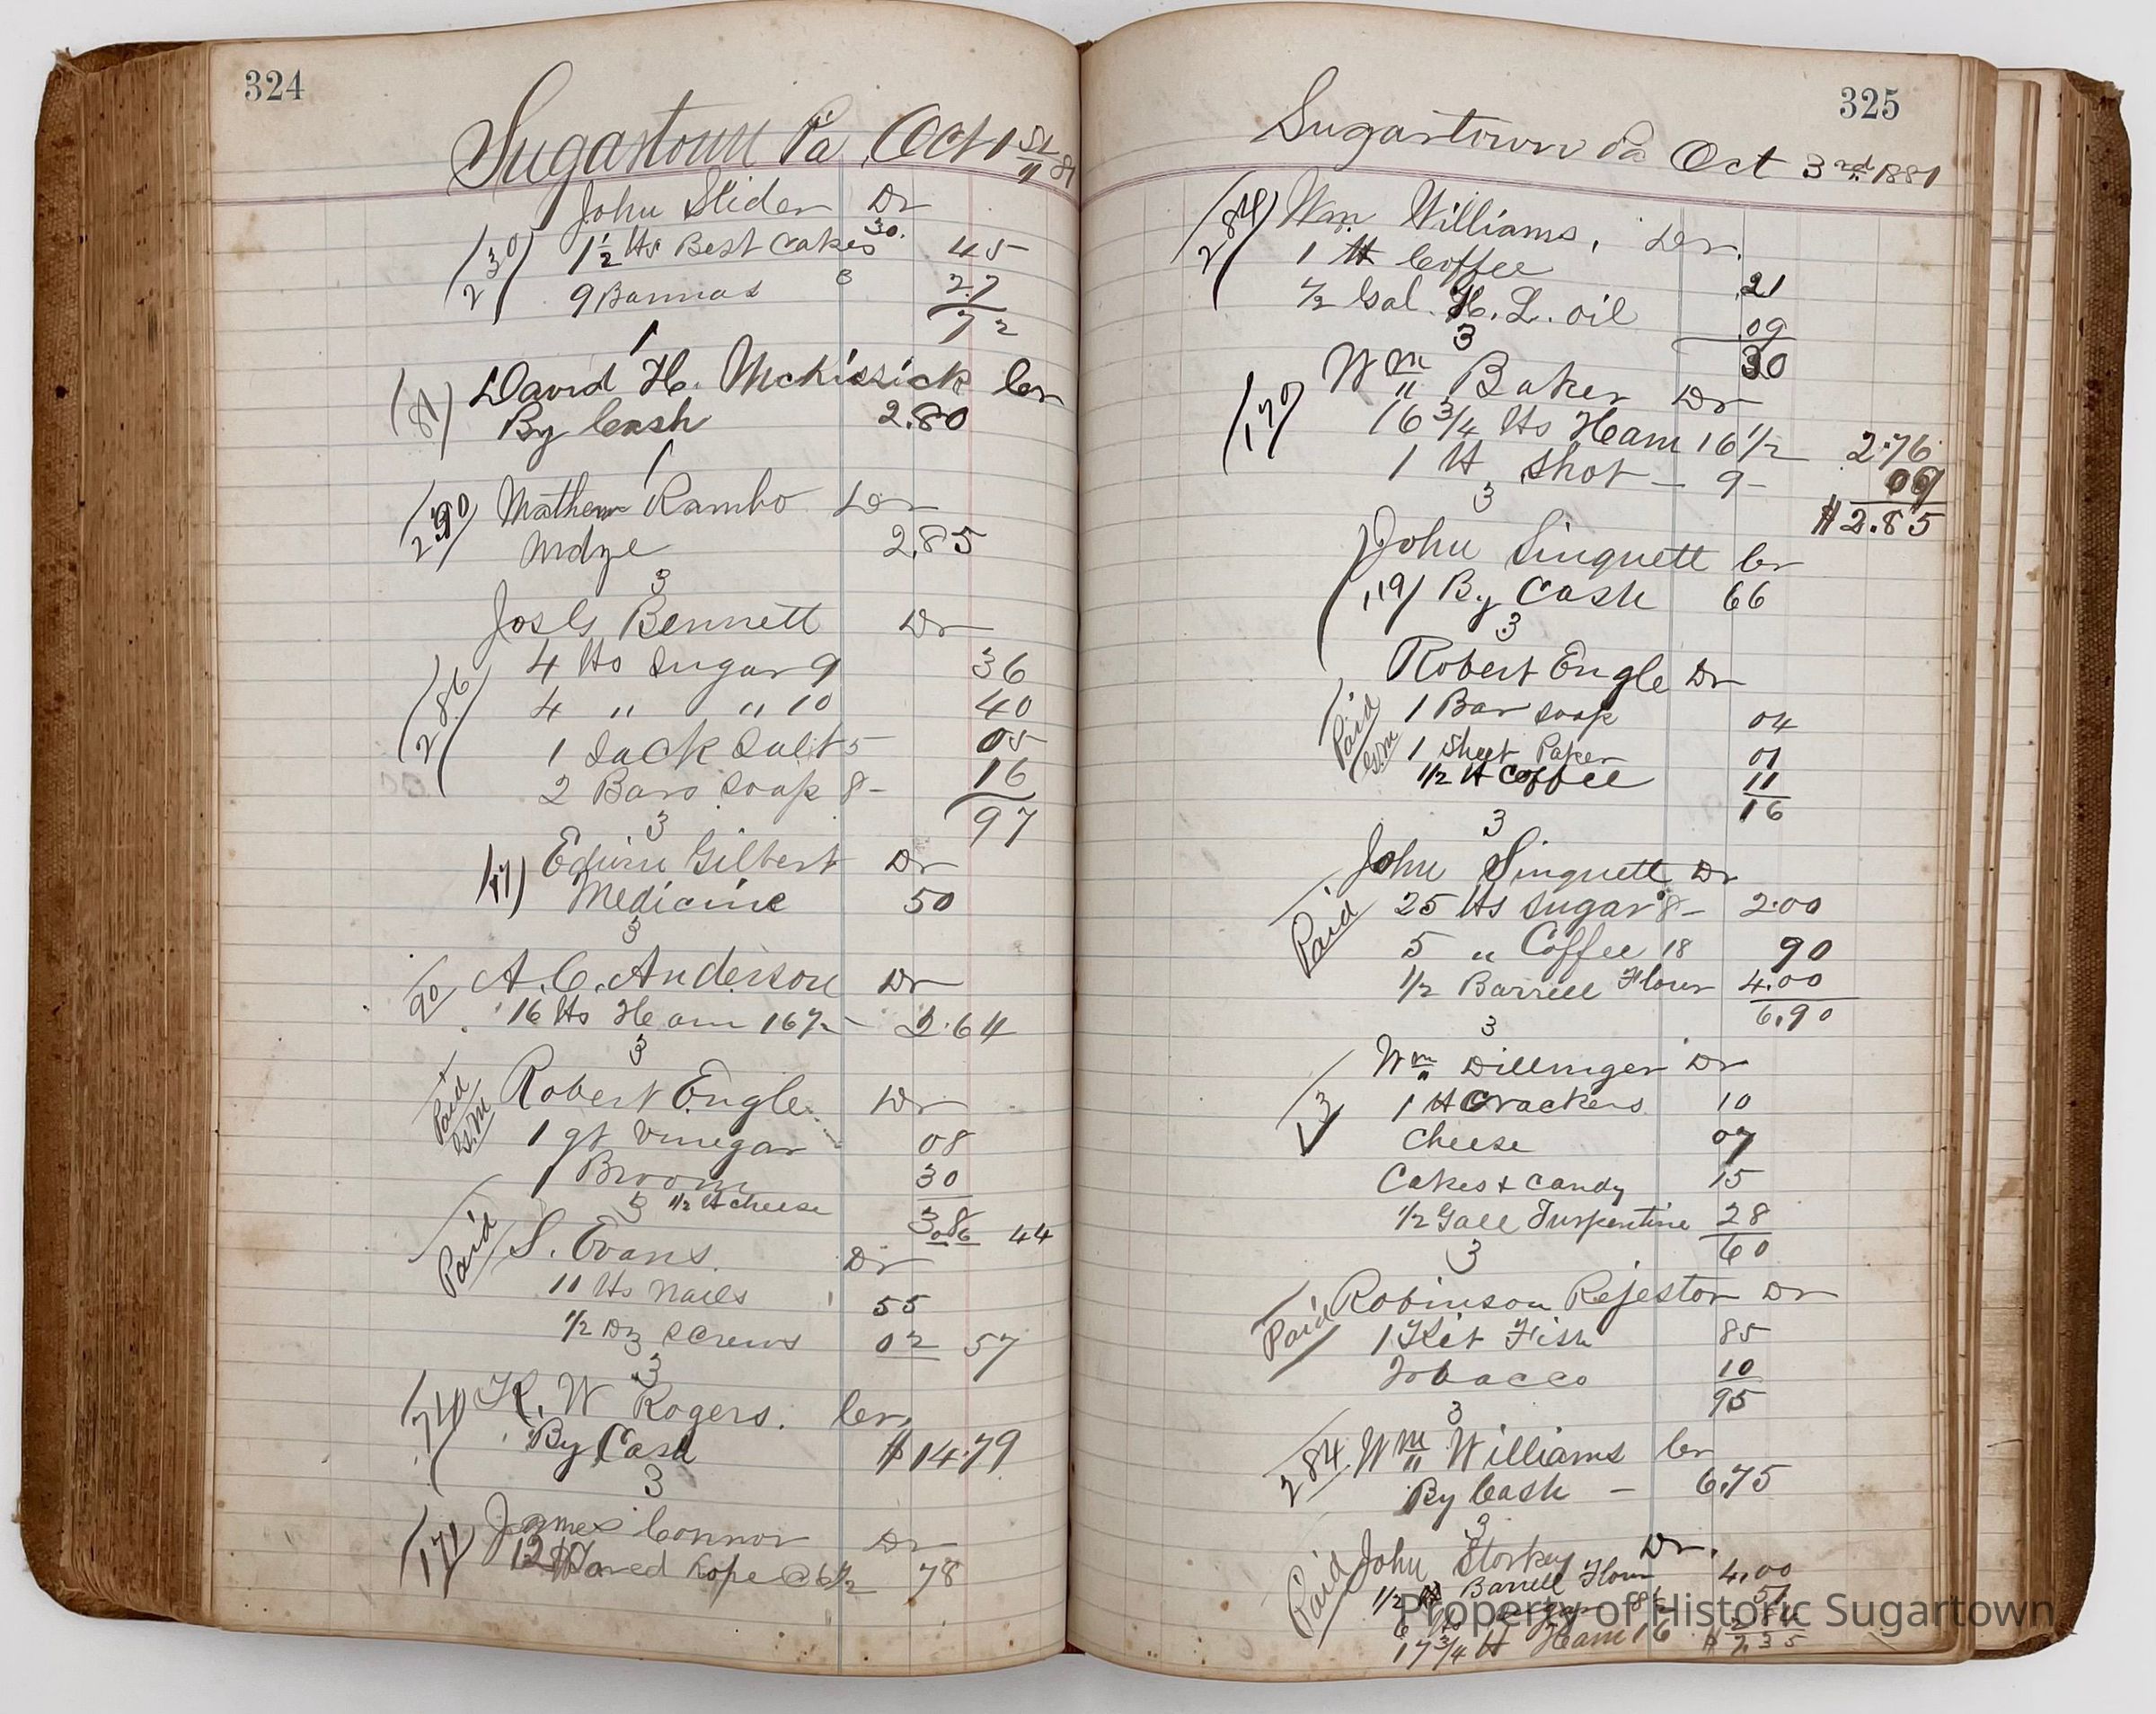 324
Sugartown Pa Oct 1st 81
John Slider Dr
230 1 1/2 lbs Best Cakes 30. 45
9 Bannas 3 27
72
1
81 David H. McKissick Cr
By Cash 2.80
1
290 Mathew Rambo Dr
Mdze 2.85
3
Jos G Bennett Dr
286 4 lbs Sugar 9 36
4 " " 10 40
1 Sack Salt 5 05
2 Bars Soap 8- 16
97
3
Edwin Gilbert Dr
Medicine 50
3
90 A. C. Anderson Dr
16 lbs Ham 16 1/2 - 2.64
3
Paid G.M Robert Engle Dr
1 qt Vinegar 08
1 Broom 30
3 1/2 lb cheese 38 06 44
Paid S. Evans Dr
11 lbs Nails 55
1/2 Dz Screws 02 57
3
74 K. W Rogers. Cr,
By Cash $14.79
3
171 James Connor Dr
12 lbs Tared Rope @ 6 1/2 78
325
Sugartown Pa Oct 3rd 1881
284 Wm. Williams, Dr.
1 lb Coffee 21
1/2 Gal. H. L. oil .09
3 30
Wm Baker Dr
170 16 3/4 lbs Ham 16 1/2 2.76
1 lb Shot - 9- 09
3 $2.85
John Sinquett Cr
119 By Cash 66
3
Robert Engle Dr
Paid G.M 1 Bar Soap 04
1 Sheet Paper 01
1/2 lb Coffee 11
16
3
John Sinquett Dr
Paid 25 lbs Sugar 8- 2.00
5 " Coffee 18 90
1/2 Barrell Flour 4.00
6.90
3
Wm Dillinger Dr
13 1 lb Crackers 10
Cheese 07
Cakes + Candy 15
1/2 Gall Turpentine 28
3 60
Paid Robinson Rejestor Dr
1 Kit Fish 85
Tobacco 10
95
3
284 Wm Williams Cr
By Cash - 6.75
3
Paid John Storkey Dr.
1/2 Barrell Flour 4.00
6 lbs Sugar 8 1/2 51
17 3/4 lb Ham 16 2.84
$7.35
Property of Historic Sugartown